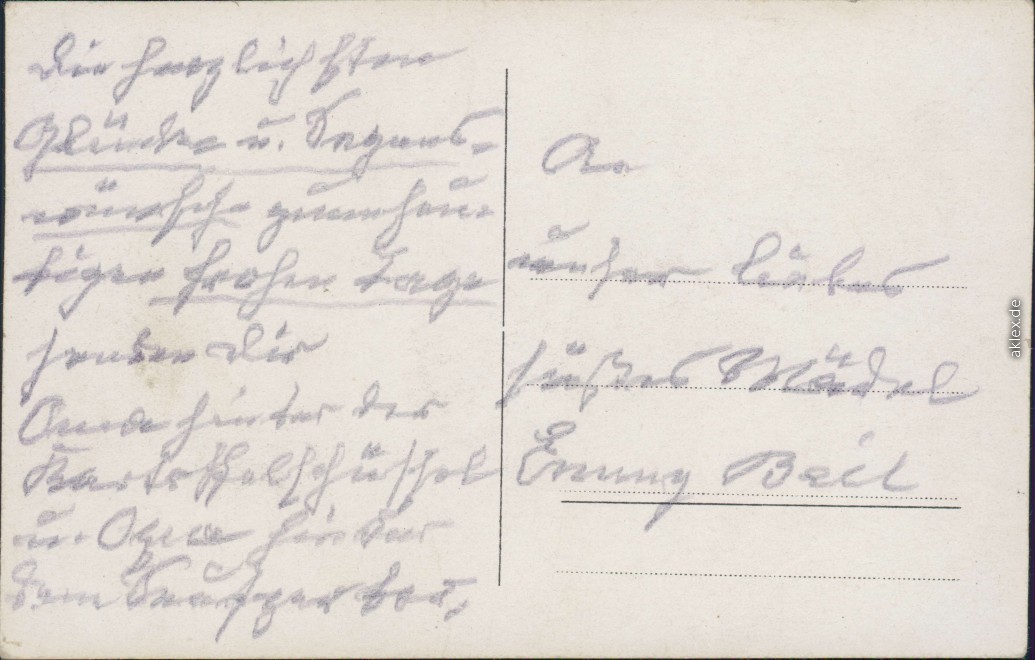 Die herzlichsten
Glücks u. Segens-
wünsche zum heu-
tigen frohen Tage
senden Dir
Oma hinter der
Kartoffelschüssel
u. Opa hinter
dem
An
unser liebes
süßes Mädel
Emmy Beil
aklex.de